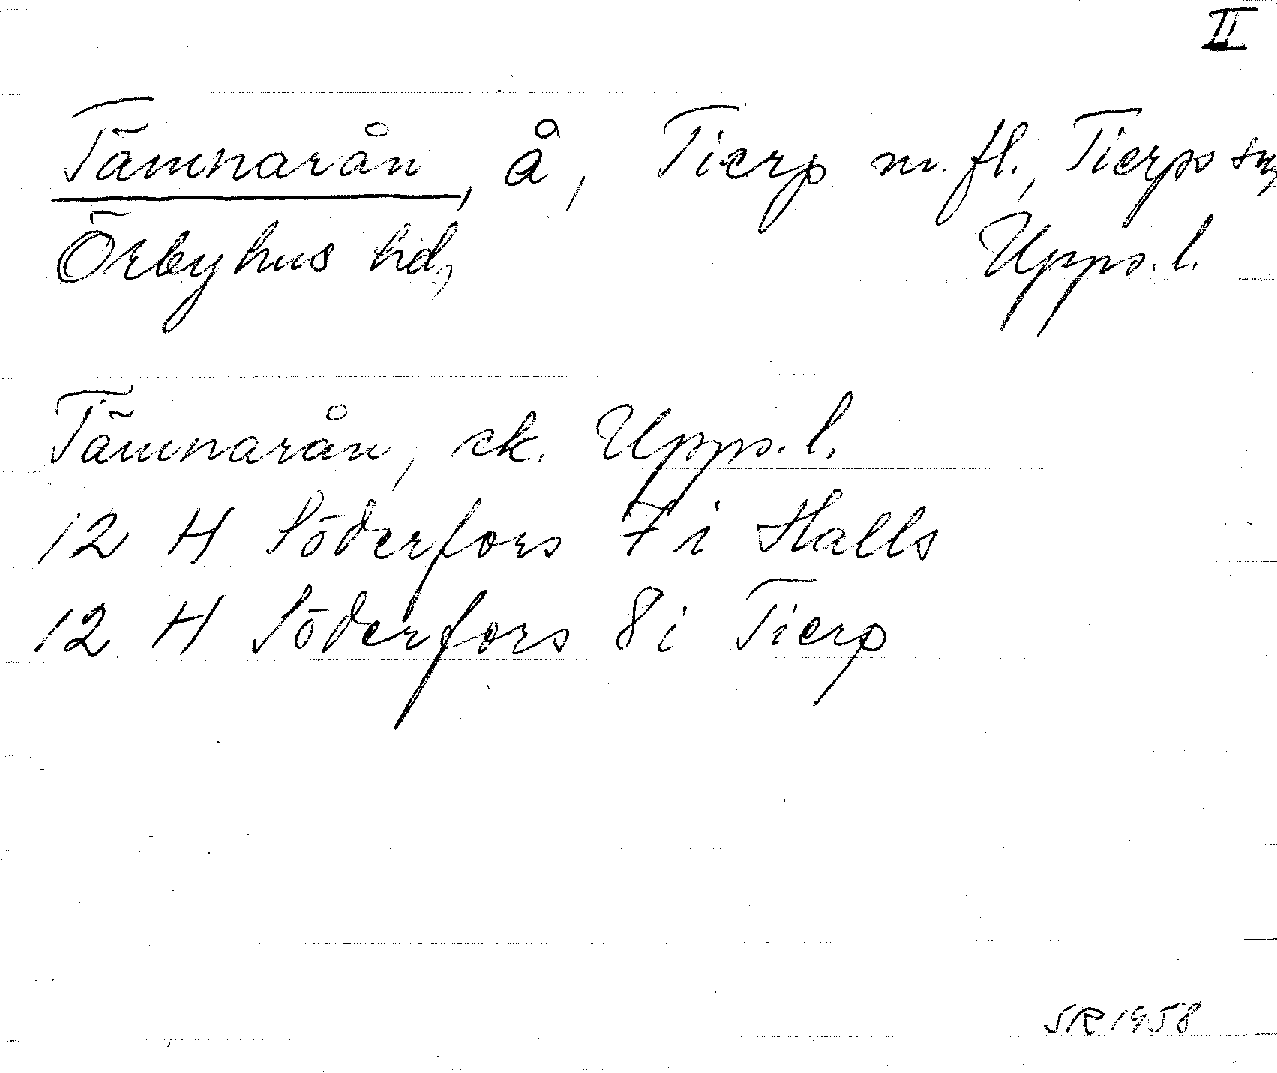 II
Tämnarån, å, Tierp m. fl., Tierps sn,
Örbyhus hd, Upps. l.
Tämnarån, ek. Upps. l.
12 H Söderfors 7 i Halls
12 H Söderfors 8 i Tierp
SR 1958